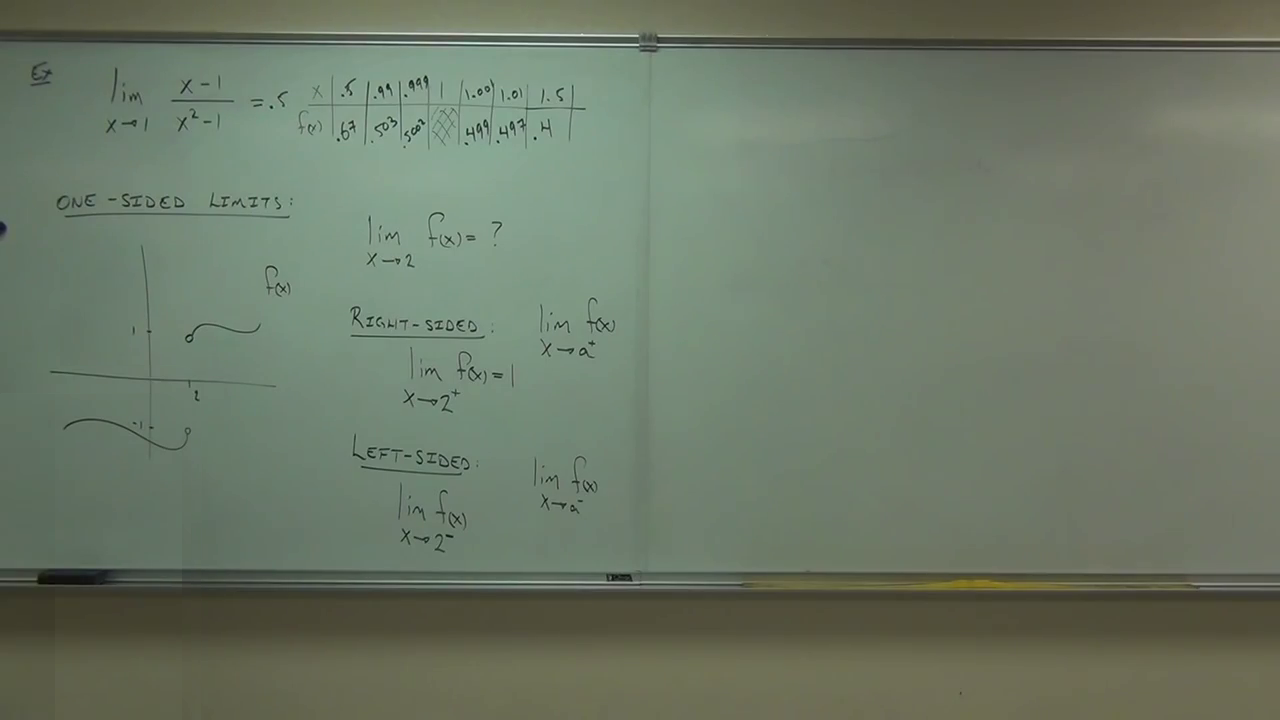 Ex lim x→1 x-1/x²-1 = .5
x .5 .99 .999 1 1.001 1.01 1.5
f(x) .67 .503 .5002 .499 .497 .4
ONE-SIDED LIMITS:
lim x→2 f(x) = ?
f(x)
1
2
-1
RIGHT-SIDED: lim x→a⁺ f(x)
lim x→2⁺ f(x) = 1
LEFT-SIDED: lim x→a⁻ f(x)
lim x→2⁻ f(x)